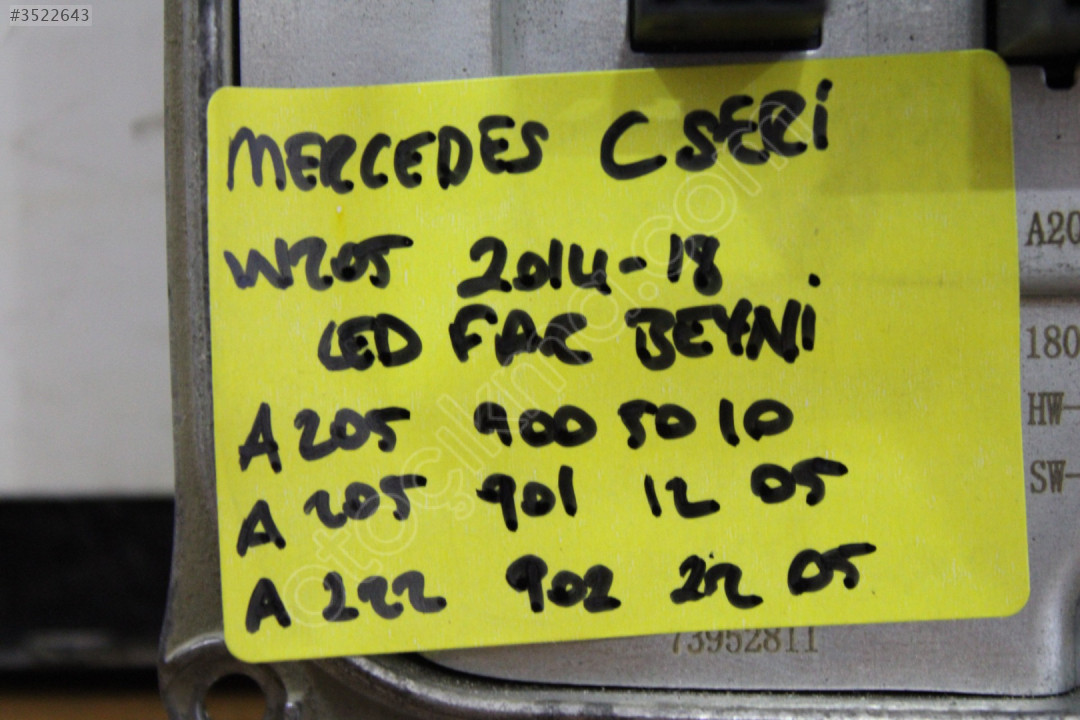 #3522643
MERCEDES C SERİ
W205 2014-18
LED FAR BEYNİ
A 205 900 50 10
A 205 901 12 05
A 222 902 22 05
otoçıkma.com
A20
180
HW-
SW-
73952811